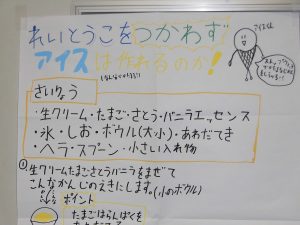 れいとうこをつかわず
アイスは作れるのか!
アイスくん
さいりょう
・生クリーム・たまご・さとう・バニラエッセンス
・氷・しお・ボウル(大小)・あわだてき
・ヘラ・スプーン・小さい入れ物
①生クリームたまごさとうバニラをまぜて
こんなかんじのえきにします。(小のボウル)
ポイント
たまごはらんぱくを